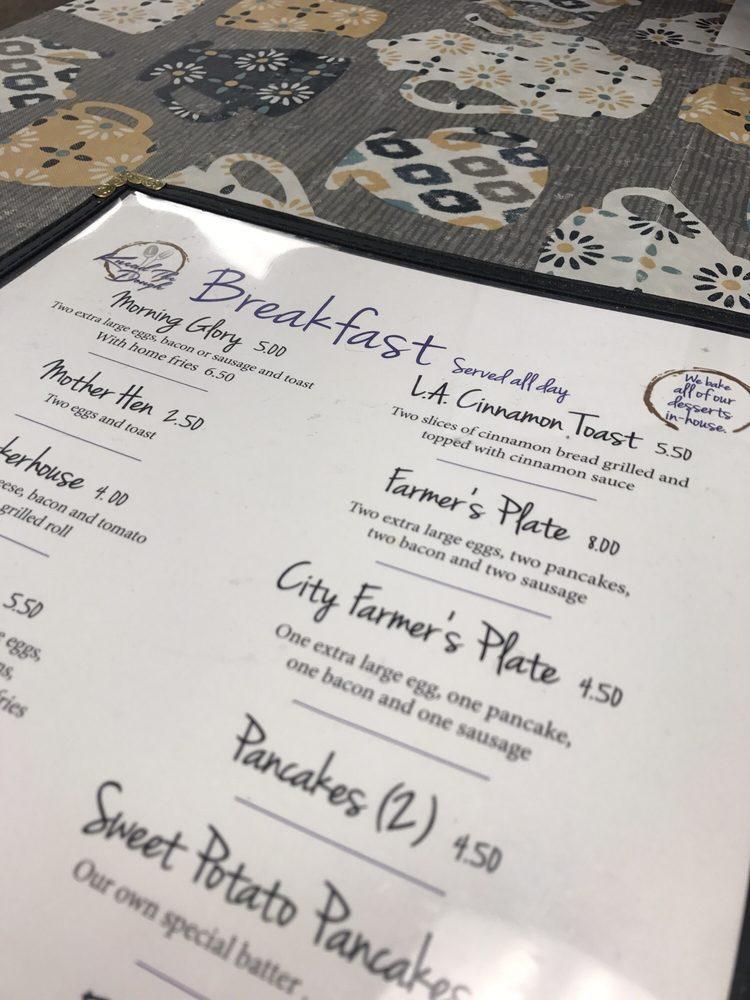 Knead The
Dough
Breakfast Served all day
Morning Glory 5.00
Two extra large eggs, bacon or sausage and toast
With home fries 6.50
Mother Hen 2.50
Two eggs and toast
kerhouse 4.00
eese, bacon and tomato
grilled roll
5.50
eggs,
ns,
fries
We bake
all of our
desserts
in-house.
L.A. Cinnamon Toast 5.50
Two slices of cinnamon bread grilled and
topped with cinnamon sauce
Farmer's Plate 8.00
Two extra large eggs, two pancakes,
two bacon and two sausage
City Farmer's Plate 4.50
One extra large egg, one pancake,
one bacon and one sausage
Pancakes (2) 4.50
Sweet Potato Pancakes
Our own special batter